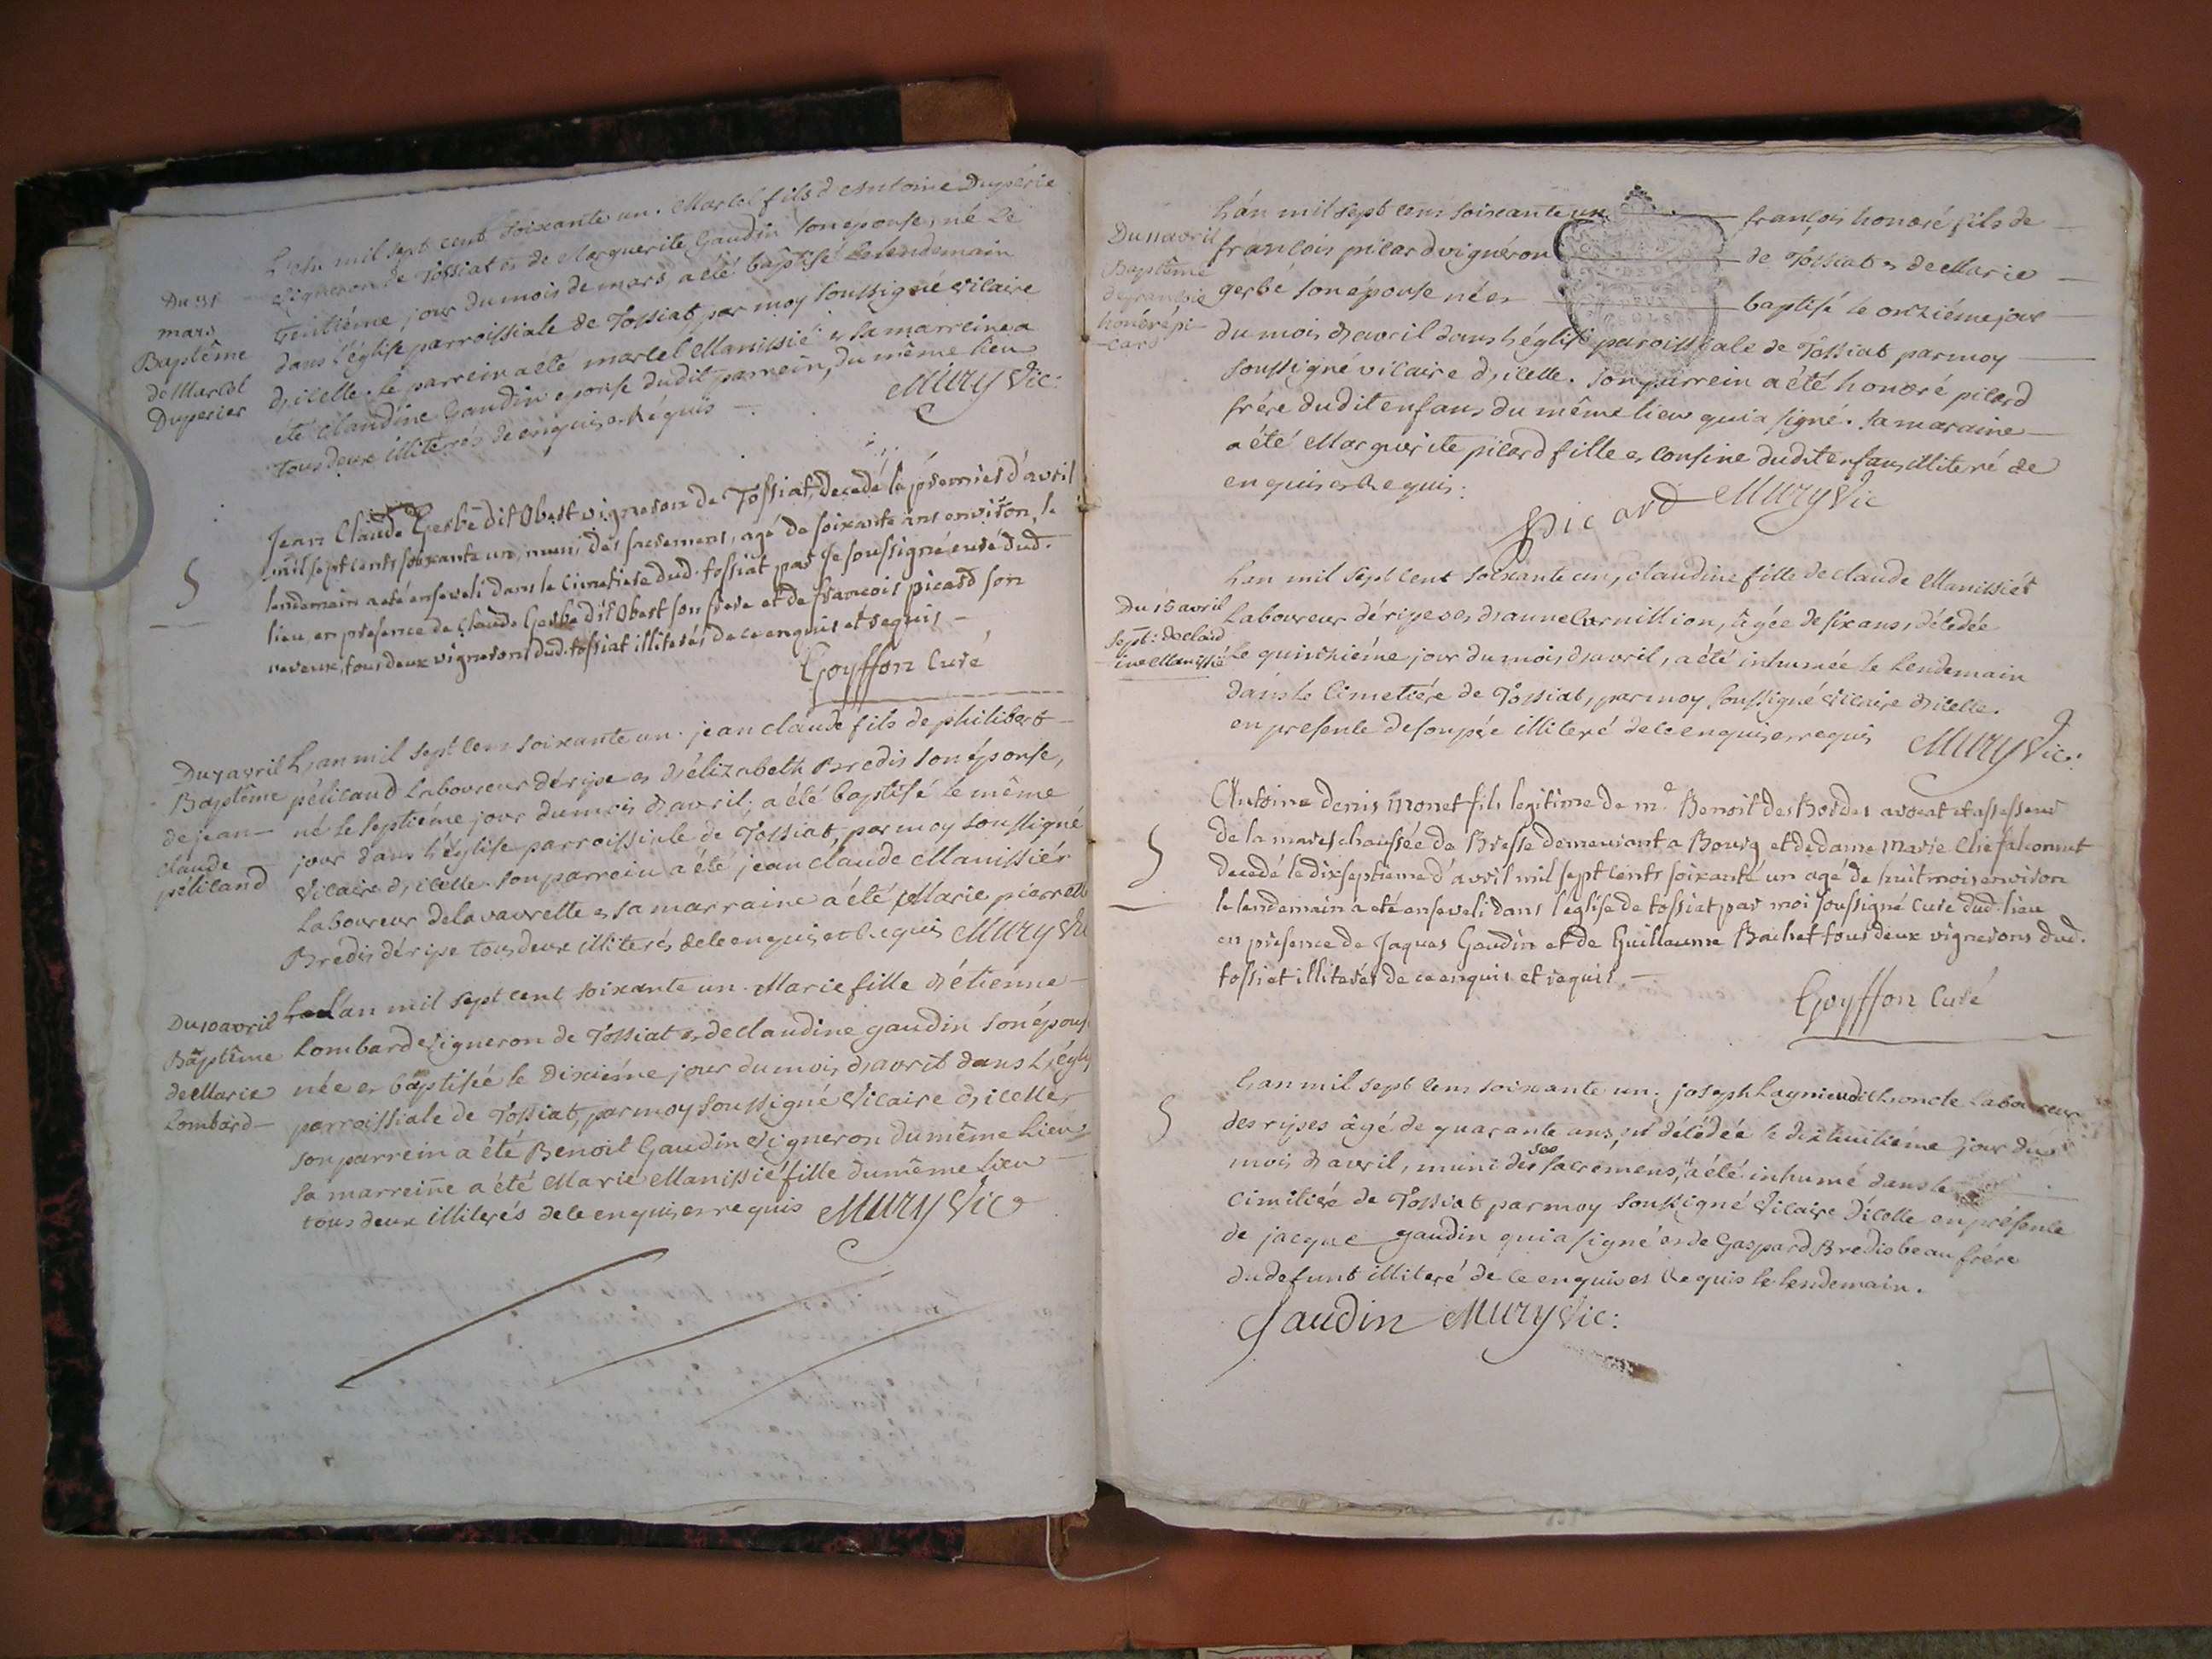 L'an mil sept cent soixante un. Marcel fils d'Antoine Duperie
Du 31
vigneron de Tossiat et de Marguerite Gaudin son epouse, né le
mars
trentiéme jour du mois de mars a été baptisé le lendemain
Baptême
dans l'église parroissiale de Tossiat par moy soussigné vicaire
de Marcel
d'icelle. le parrein a été marcel Manissié et sa marreine a
Duperier
été Claudine Gaudin epouse dudit parrein, du même lieu
tous deux illiterés de ce enquis et Réquis
Mury Vic:
Jean Claude Gerbe dit Obest vigneron de Tossiat, decedé le premier d'avril
mil sept cents soixante un, muni des sacremens, agé de soixante ans environ, le
S
lendemain a eté enseveli dans le Cimetiere dud. tossiat par Je soussigné curé dud.
lieu en presence de Claude Gerbe dit Obest son frere et de françois picard son
neveux, tous deux vignerons dud. tossiat illiterés de ce enquis et requis
Goyffon Curé
Du 7 avril L'an mil sept cens soixante un. jean claude fils de philibert
Baptême pélicand Laboureur déripe et d'élizabeth Bredis son épouse,
de jean né le septiéme jour du mois d'avril; a été baptisé le même
claude jour dans l'église parroissiale de Tossiat, par moy soussigné
pélicand vicaire d'icelle. son parrein a été jean claude Manissiér
Laboureur de la vavrette et sa marraine a été Marie pierrette
Bredis dé ripe tous deux illiterés de ce enquis et Requis Mury Vic
L'an mil sept cent soixante un. Marie fille d'étienne
Du 10 avril
Baptême Lombard vigneron de Tossiat et de claudine gaudin son épouse
de Marie née et baptisée le Dixiéme jour du mois d'avril dans L'églis
Lombard parroissiale de Tossiat, par moy soussigné Vicaire d'icelle
son parrein a été Benoit Gaudin Vigneron du même Lieu
Sa marreine a été Marie Manissié fille du même lieu
tous deux illiterés de ce enquis et requis Mury Vic
L'an mil sept cens soixante un françois honoré fils de
Du 11 avril
françois picard vignéron de Tossiat et de Marie
Baptême
de francois gerbé son épouse né et baptisé le onziéme jour
honoré pi-
card
du mois d'avril dans l'église paroissiale de Tossiat par moy
soussigné vicaire d'icelle. son parrein a été honoré picard
frére dudit enfans du même lieu qui a signé. sa maraine
a été Marguerite picard fille et cousine dudit enfans illiteré de
enquis et Requis:
Picard Mury Vic
L'an mil sept cent soixante un, claudine fille de claude Manissiér
Du 15 avril
Laboureur déripes et d'anne Cornillion, âgée de six ans, décédée
sept: de claud
ine Manissié
le quinziéme jour du mois d'avril, a été inhumée le Lendemain
dans le Cimetiére de Tossiat, par moy soussigné Vicaire d'icelle.
en presence de son pére illiteré de ce enquis et requis Mury Vic:
Antoine denis Monet fils legitime de mᵉ Benoit des Bordes avocat et assesseur
de la mareschaussée de Bresse demeurant a Bourg et de dame Marie
S
decedé le dix septieme d'avril mil sept cents soixante un agé de huit mois environ
le lendemain a eté enseveli dans l'eglise de tossiat par moi soussigné Curé dud. lieu
en presence de Jaques Gaudin et de Guillaume Bachet tous deux vignerons dud.
tossiat illiterés de ce enquis et requis.
Goyffon Curé
L'an mil sept cens soixante un; joseph Laynieu dit L'oncle Laboureur
S
des ripes âgé de quarante ans, décédée le dix huitiéme jour du
mois d'avril, muni des ses sacrémens, a été inhumé dans le
Cimitiré de Tossiat par moy soussigné Vicaire d'icelle en présence
de jacque gaudin qui a signé et de Gaspard Bredis beau frére
du defunt illiteré de ce enquis et Requis le lendemain.
Gaudin Mury Vic: